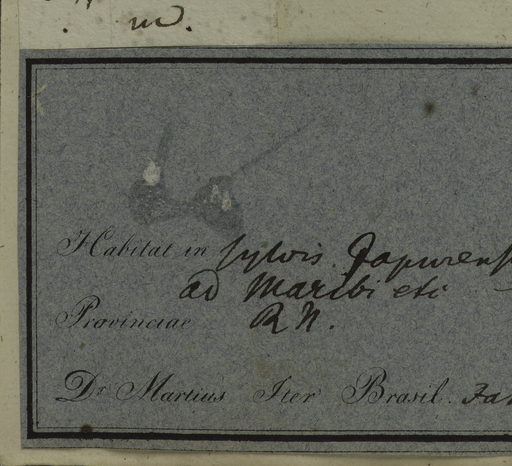 m.
Habitat in sylvis Japurens
ad Maribi etc
Provinciae R N.
Dr. Martius Iter Brasil. Jan